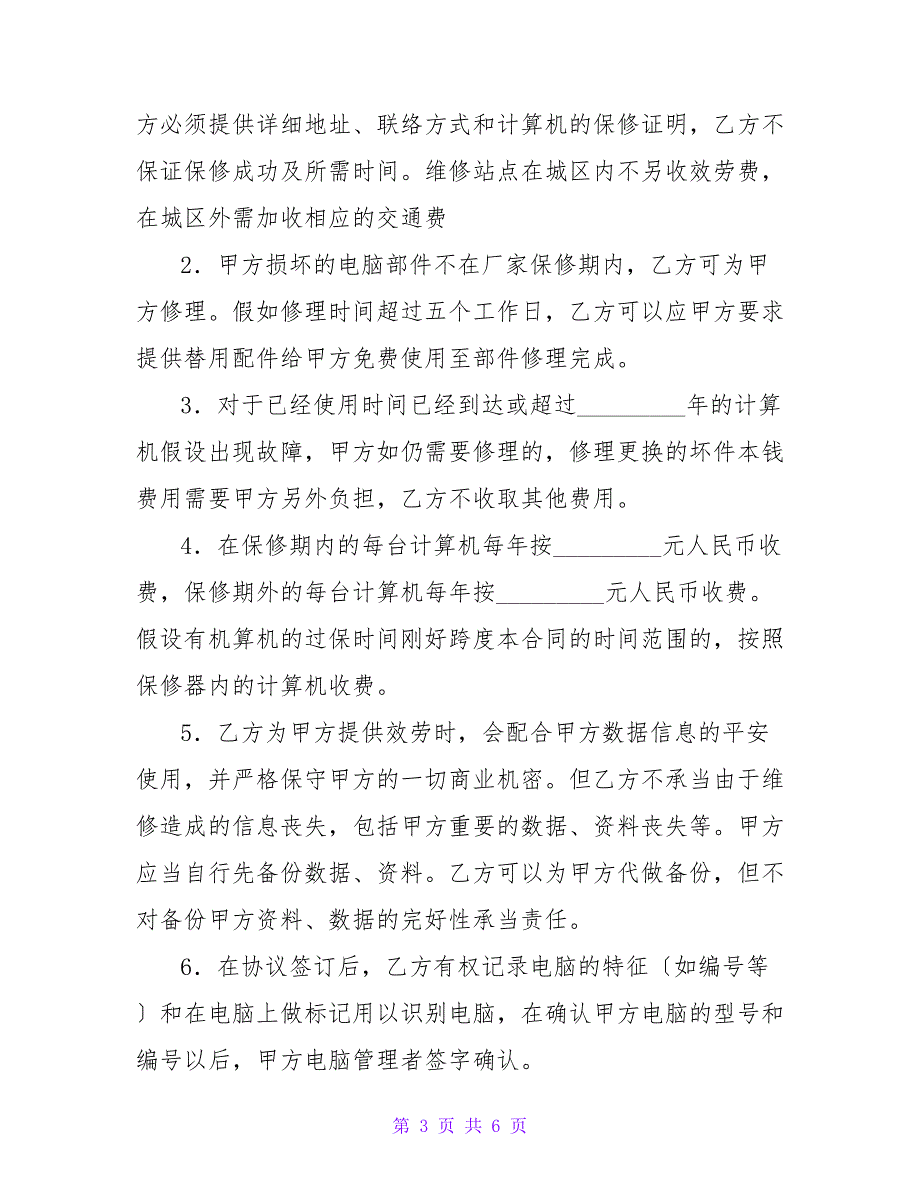 方必须提供详细地址、联络方式和计算机的保修证明，乙方不
保证保修成功及所需时间。维修站点在城区内不另收效劳费，
在城区外需加收相应的交通费
2．甲方损坏的电脑部件不在厂家保修期内，乙方可为甲
方修理。假如修理时间超过五个工作日，乙方可以应甲方要求
提供替用配件给甲方免费使用至部件修理完成。
3．对于已经使用时间已经到达或超过_________年的计算
机假设出现故障，甲方如仍需要修理的，修理更换的坏件本钱
费用需要甲方另外负担，乙方不收取其他费用。
4．在保修期内的每台计算机每年按_________元人民币收
费，保修期外的每台计算机每年按_________元人民币收费。
假设有机算机的过保时间刚好跨度本合同的时间范围的，按照
保修器内的计算机收费。
5．乙方为甲方提供效劳时，会配合甲方数据信息的平安
使用，并严格保守甲方的一切商业机密。但乙方不承当由于维
修造成的信息丧失，包括甲方重要的数据、资料丧失等。甲方
应当自行先备份数据、资料。乙方可以为甲方代做备份，但不
对备份甲方资料、数据的完好性承当责任。
6．在协议签订后，乙方有权记录电脑的特征〔如编号等
〕和在电脑上做标记用以识别电脑，在确认甲方电脑的型号和
编号以后，甲方电脑管理者签字确认。
第 3 页 共 6 页